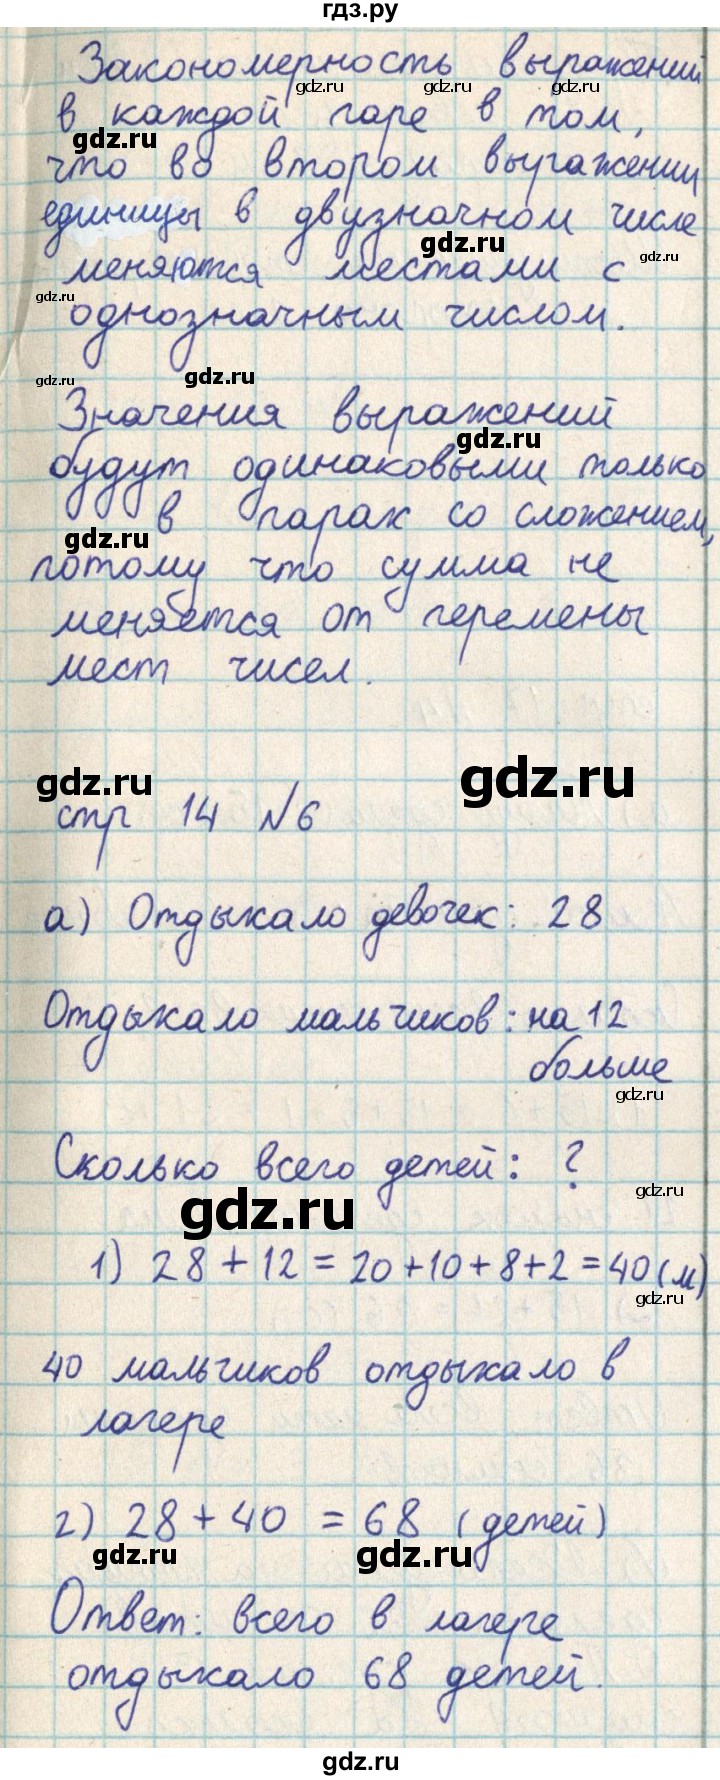 гдз.ру
Закономерность выражений
gdz.ru gdz.ru gdz.ru
в каждой паре в том,
gdz.ru
что во втором выражении
единицы в двузначном числе
gdz.ru gdz.ru
меняются местами с
gdz.ru
однозначным числом.
gdz.ru gdz.ru
Значения выражений
gdz.ru
будут одинаковыми только
в парах со сложением,
gdz.ru
потому что сумма не
меняется от перемены
мест чисел.
gdz.ru gdz.ru
стр 14 №6
а) Отдыхало девочек: 28
Отдыхало мальчиков: на 12
больше
gdz.ru
Сколько всего детей: ?
gdz.ru gdz.ru
1) 28 + 12 = 20 + 10 + 8 + 2 = 40 (м)
gdz.ru
40 мальчиков отдыхало в
лагере
2) 28 + 40 = 68 (детей)
gdz.ru gdz.ru
Ответ: всего в лагере
отдыхало 68 детей.
gdz.ru